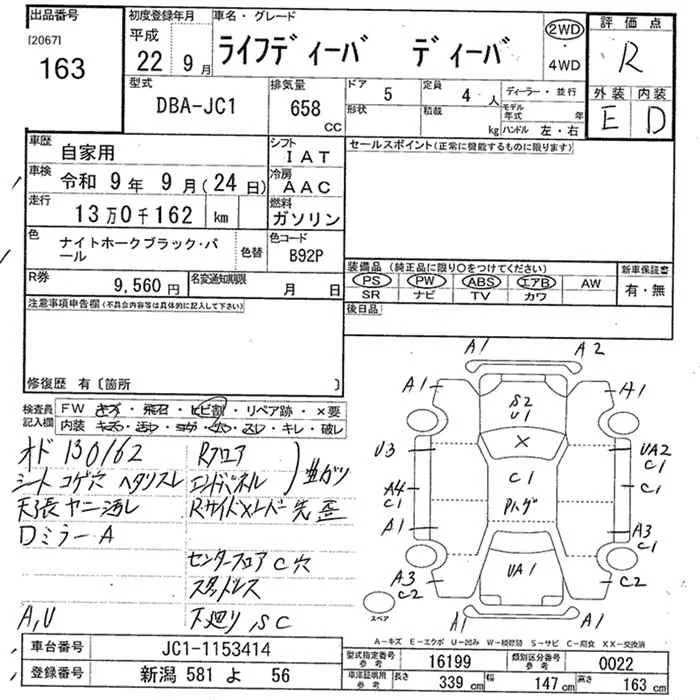 出品番号 初度登録年月 車名・グレード 評価点
[2067]
163
平成
22 9月 ライフディーバ ディーバ 2WD・4WD R
型式 排気量 ドア 5 定員 4人 ディーラー・並行 外装 内装
DBA-JC1 658 cc 形状 積載 kg モデル年式 年 ハンドル 左・右 E D
車歴 自家用 シフト IAT セールスポイント(正常に機能するものに限ります)
車検 令和 9年 9月(24日) 冷房 AAC
走行 13万0千162 km 燃料 ガソリン
色 ナイトホークブラック・パール 色替 色コード B92P
装備品(純正品に限り○をつけてください) 新車保証書
R券 9,560円 名変通知期限 月 日 PS PW ABS エアB AW 有・無
SR ナビ TV カワ
注意事項申告欄(不具合内容等は具体的に記入して下さい) 後日品
修復歴 有〔箇所 〕
検査員記入欄 FW キズ・飛石・ヒビ割・リペア跡・×要
内装 キズ・汚レ・コゲ・穴・スレ・キレ・破レ
オド 130162 Rフロア
シート コゲ穴 ヘタリスレ エンドパネル 曲ガリ
天張ヤニ汚レ Rサイドメンバー先歪
Dミラー A
センターフロア C穴
スタッドレス
A,U 下廻り,SC
A1 A2
A1 S2 U1 A1
U3 × UA2 C1
A4 C1 C1 C1
A1 A3 C1
A3 C2 UA1 C2
A1 A1
スペア
A-キズ E-エクボ U-凹み W-補修跡 S-サビ C-腐食 XX-交換済
車台番号 JC1-1153414
登録番号 新潟 581 よ 56
型式指定番号 参考 16199 類別区分番号 参考 0022
車検証明用 参考 長さ 339 cm 幅 147 cm 高さ 163 cm